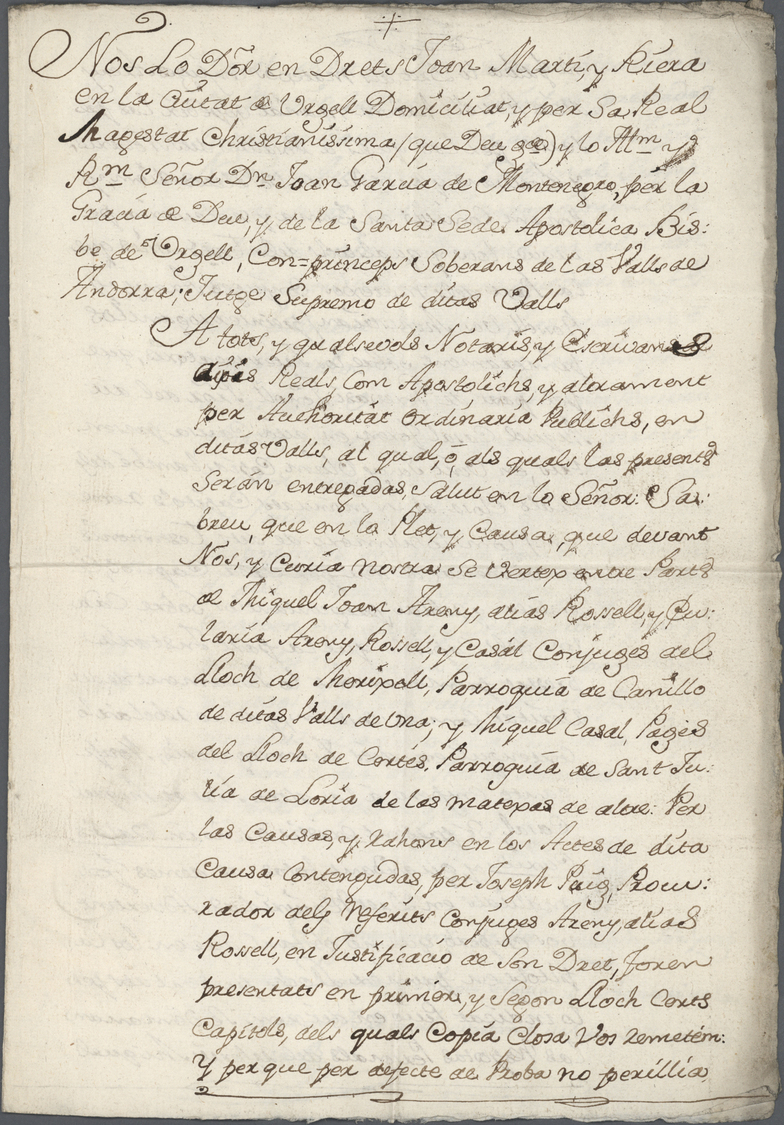 Nos Lo Dor en Drets Joan Martí, y Riera
en la Ciutat de Urgell Domiciliat, y per Sa Real
Magestat Christianissima (que Deu gde) y lo Illm y
Rm Señor Dn Joan Garcia de Montenegro, per la
Gracia de Deu, y de la Santa Sede Apostolica Bis:
be de Urgell, Con=princeps Soberans de las Valls de
Andorra; Jutge Supremo de ditas Valls
A tots, y qualsevols Notaris, y Escrivans
Reals, com Apostolichs, y altrament
per Authoritat Ordinaria Publichs, en
ditas Valls, al qual, ó, als quals las presents
Serán entregadas, Salut en lo Señor: Sa:
breu, que en lo Plet, y Causa, que devant
Nos, y Curia nostra Se Vertex entre Parts
de Miquel Joan Areny, alias Rossell, y Eu:
laria Areny, Rossell, y Casal Conjuges del
Lloch de Meritxell, Parroquia de Canillo
de ditas Valls de Una; y Miquel Casal, Pages
del Lloch de Cortés, Parroquia de Sant Ju:
lia de Loria de las matexas de altre: Per
las Causas, y rahons en los Actes de dita
Causa Contengudas, per Joseph Puig, Procu:
rador dels Referits Conjuges Areny, alias
Rossell, en Justificació de Son Dret, foren
presentats en primer, y Segon Lloch Certs
Capitols, dels quals Copia Closa Vos remetém:
Y per que per defecte de Proba no perillia